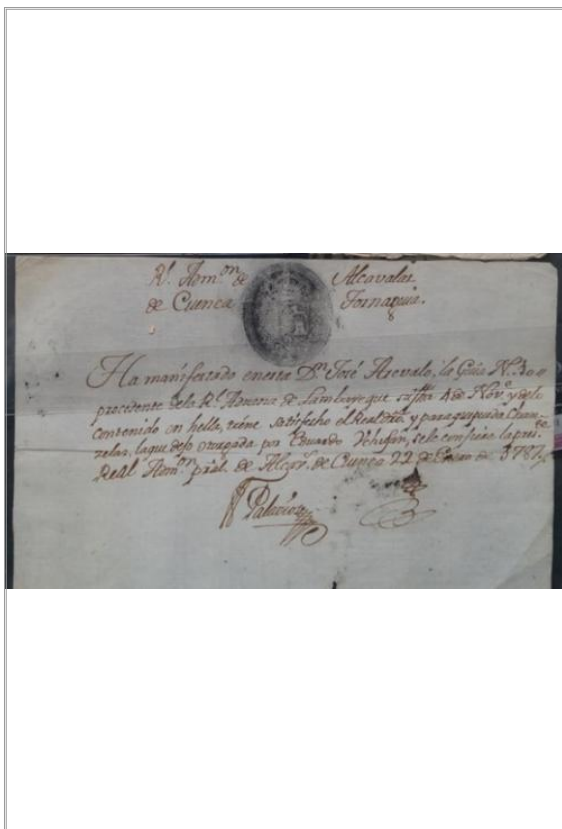 Rl. Admon. de Alcavalas
de Cuenca Tornaguia.
Ha manifestado en esta Dn. José Arevalo, la Guia N. 300
procedente dela Rl. Aduana de Lambayeque su fha 4 de Nov.e y delo
contenido en hella, tiene satisfecho el Real dro. y para que pueda Chan-
zelar, la que dejo otorgada por Eduardo se le confiere la pres.te
Real Admon. pral. de Alcav.s de Cuenca 22 de Enero de 1787
Palacios